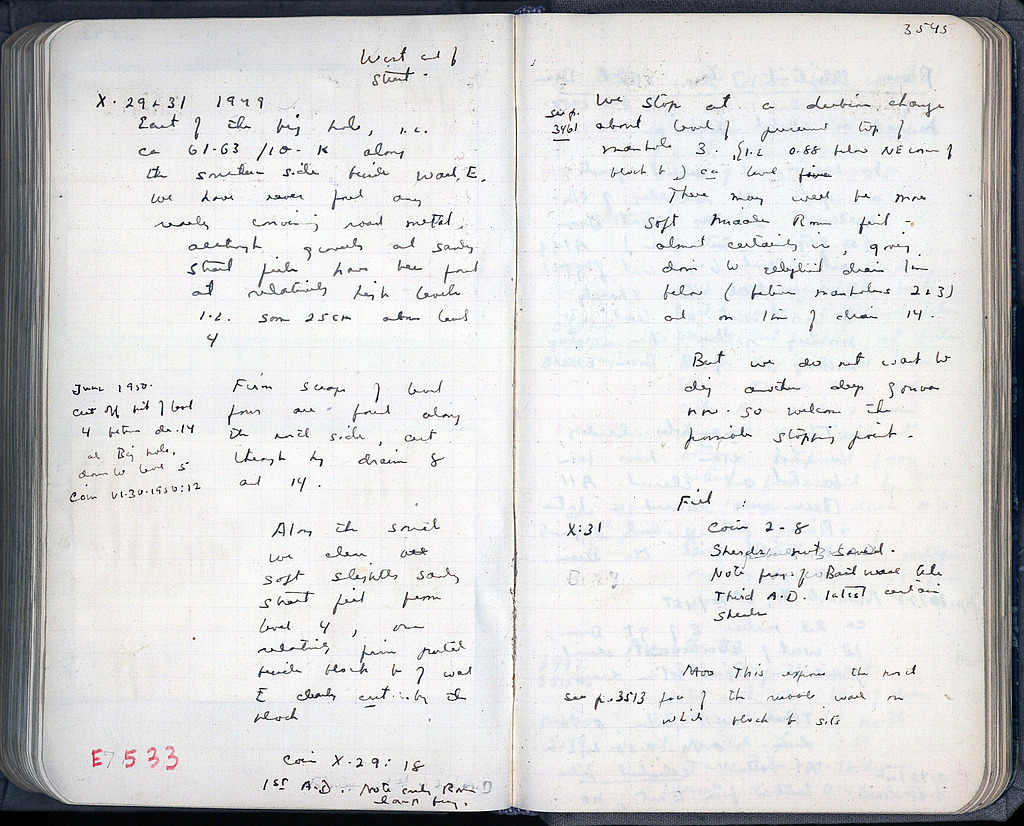 West end of
Street -
X. 29 + 31 1949
East of the big hole, i.e.
ca 61-63 /10 - K along
the southern side, beside wall E,
we have never found any
really convincing road metal,
although gravels and sandy
street fills have been found
at relatively high levels
i.e. some 25 cm above level
4
June 1950.
cut off bit of level
4 between dr. 14
and Big hole,
down to level 5
Coin VI-30-1950:12
Firm scraps of level
four are found along
the north side, cut
through by drains 8
and 14.
Along the south
we clean out
soft slightly sandy
street fill from
level 4, over
relatively firm
beside block b of wall
E clearly cut by the
block
E7 533
Coin X-29: 18
1st A.D. Note early Rom
lamp frg.
3545
We stop at a dubious change
see p.
3461
about level of present top of
manhole 3. (i.e. 0.88 below NE corner of
block b) ca level five
There may well be more
soft Middle Rom fill -
almost certainly is, going
down to drain 1m
below (between manholes 2 + 3)
and on line of drain 14.
But we do not want to
dig another deep
now. So welcome the
possible stopping point.
Fill:
X:31 Coin 2-8
Sherds not saved.
Note
Third A.D. latest certain
sherds
Also This exposes the north
see p. 3513 face of the rubble wall on
which block b sits